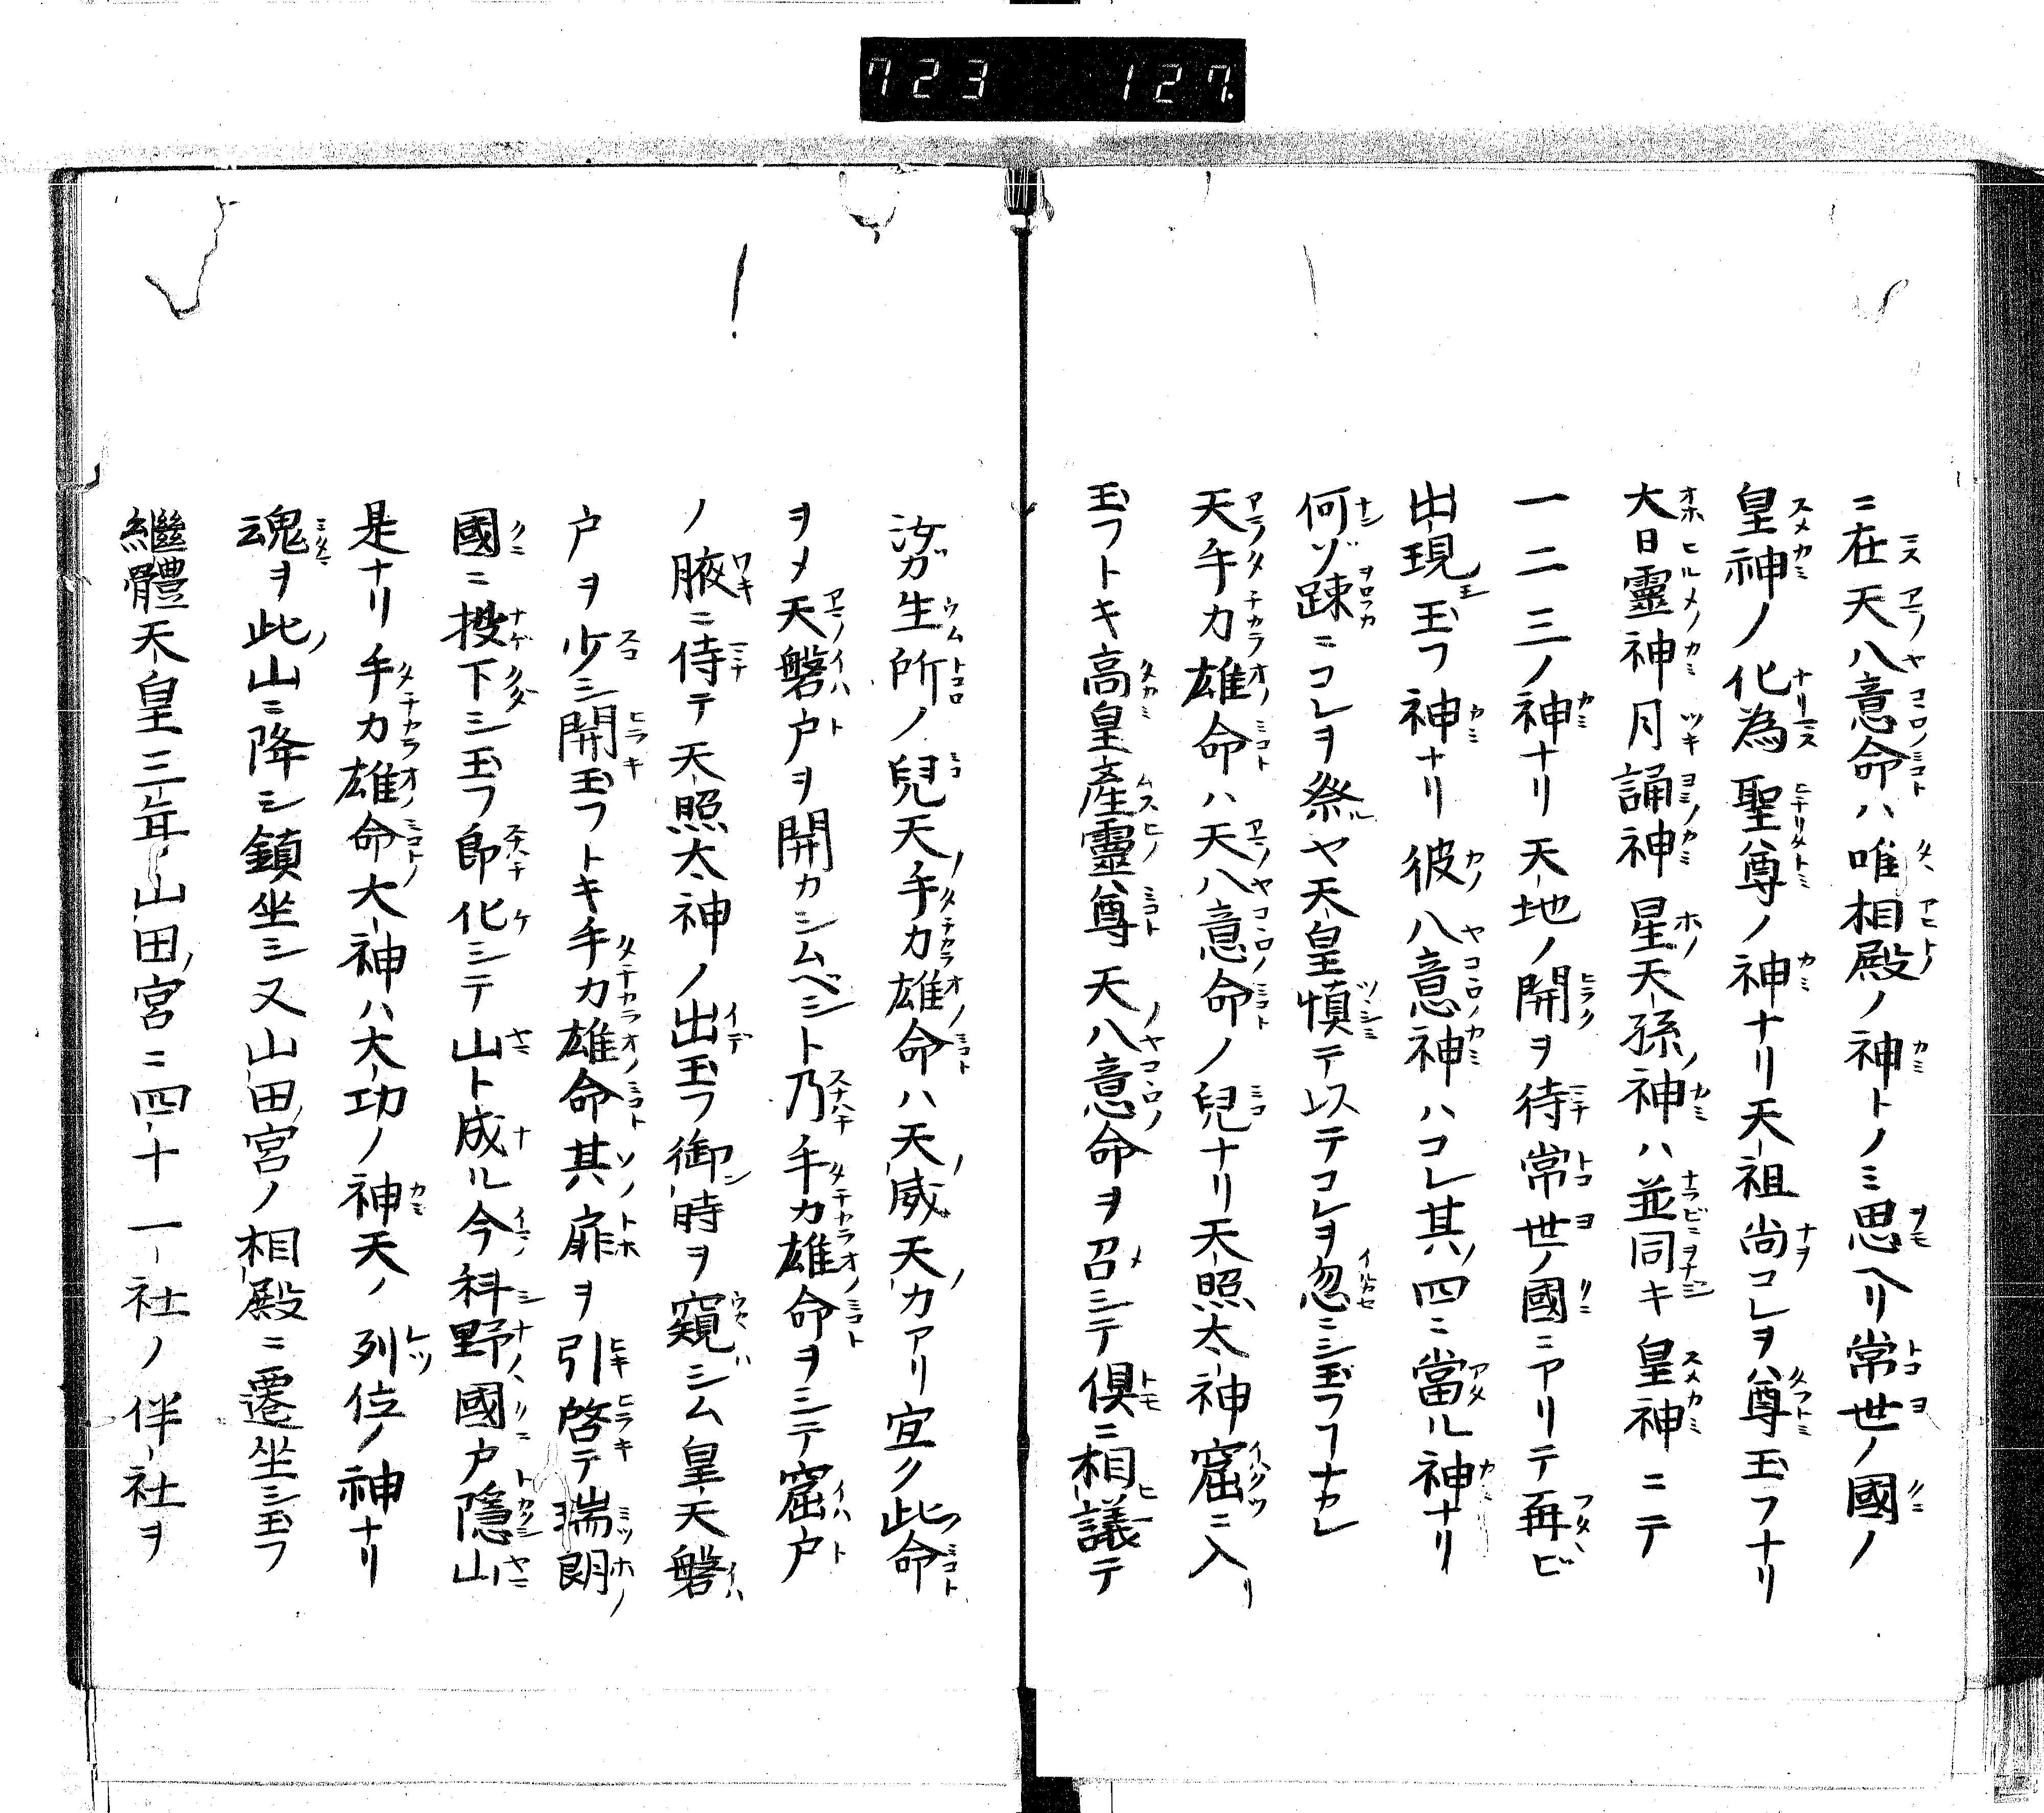 723 127
ニ在天八意命ハ唯相殿ノ神トノミ思ヘリ常世ノ國ノ
皇神ノ化為聖尊ノ神ナリ天祖尚コレヲ尊玉フナリ
大日靈神月誦神星天孫神ハ並同キ皇神ニテ
一二三ノ神ナリ天地ノ開ヲ待常世ノ國ニアリテ再ビ
出現玉フ神ナリ彼八意神ハコレ其ノ四ニ當ル神ナリ
何ゾ踈ニコレヲ祭ルヤ天皇慎テ以テコレヲ忽ニシ玉フコナカレ
天手力雄命ハ天八意命ノ兒ナリ天照太神窟ニ入リ
玉フトキ高皇產靈尊天八意命ヲ召シテ俱ニ相議テ
汝ガ生所ノ兒天手力雄命ハ天威天力アリ宜ク此命
ヲメ天磐戶ヲ開カシムベシト乃手力雄命ヲシテ窟戶
ノ腋ニ侍テ天照太神ノ出玉フ御時ヲ窺ハシム皇天磐
戶ヲ少シ開玉フトキ手力雄命其扉ヲ引啓テ瑞朗
國ニ投下シ玉フ卽化シテ山ト成ル今科野國戶隱山
是ナリ手力雄命大神ハ大功ノ神天ノ列位ノ神ナリ
魂ヲ此山ニ降シ鎮坐シ又山田宮ノ相殿ニ遷坐シ玉フ
繼體天皇三年山田宮ニ四十一社ノ伴社ヲ